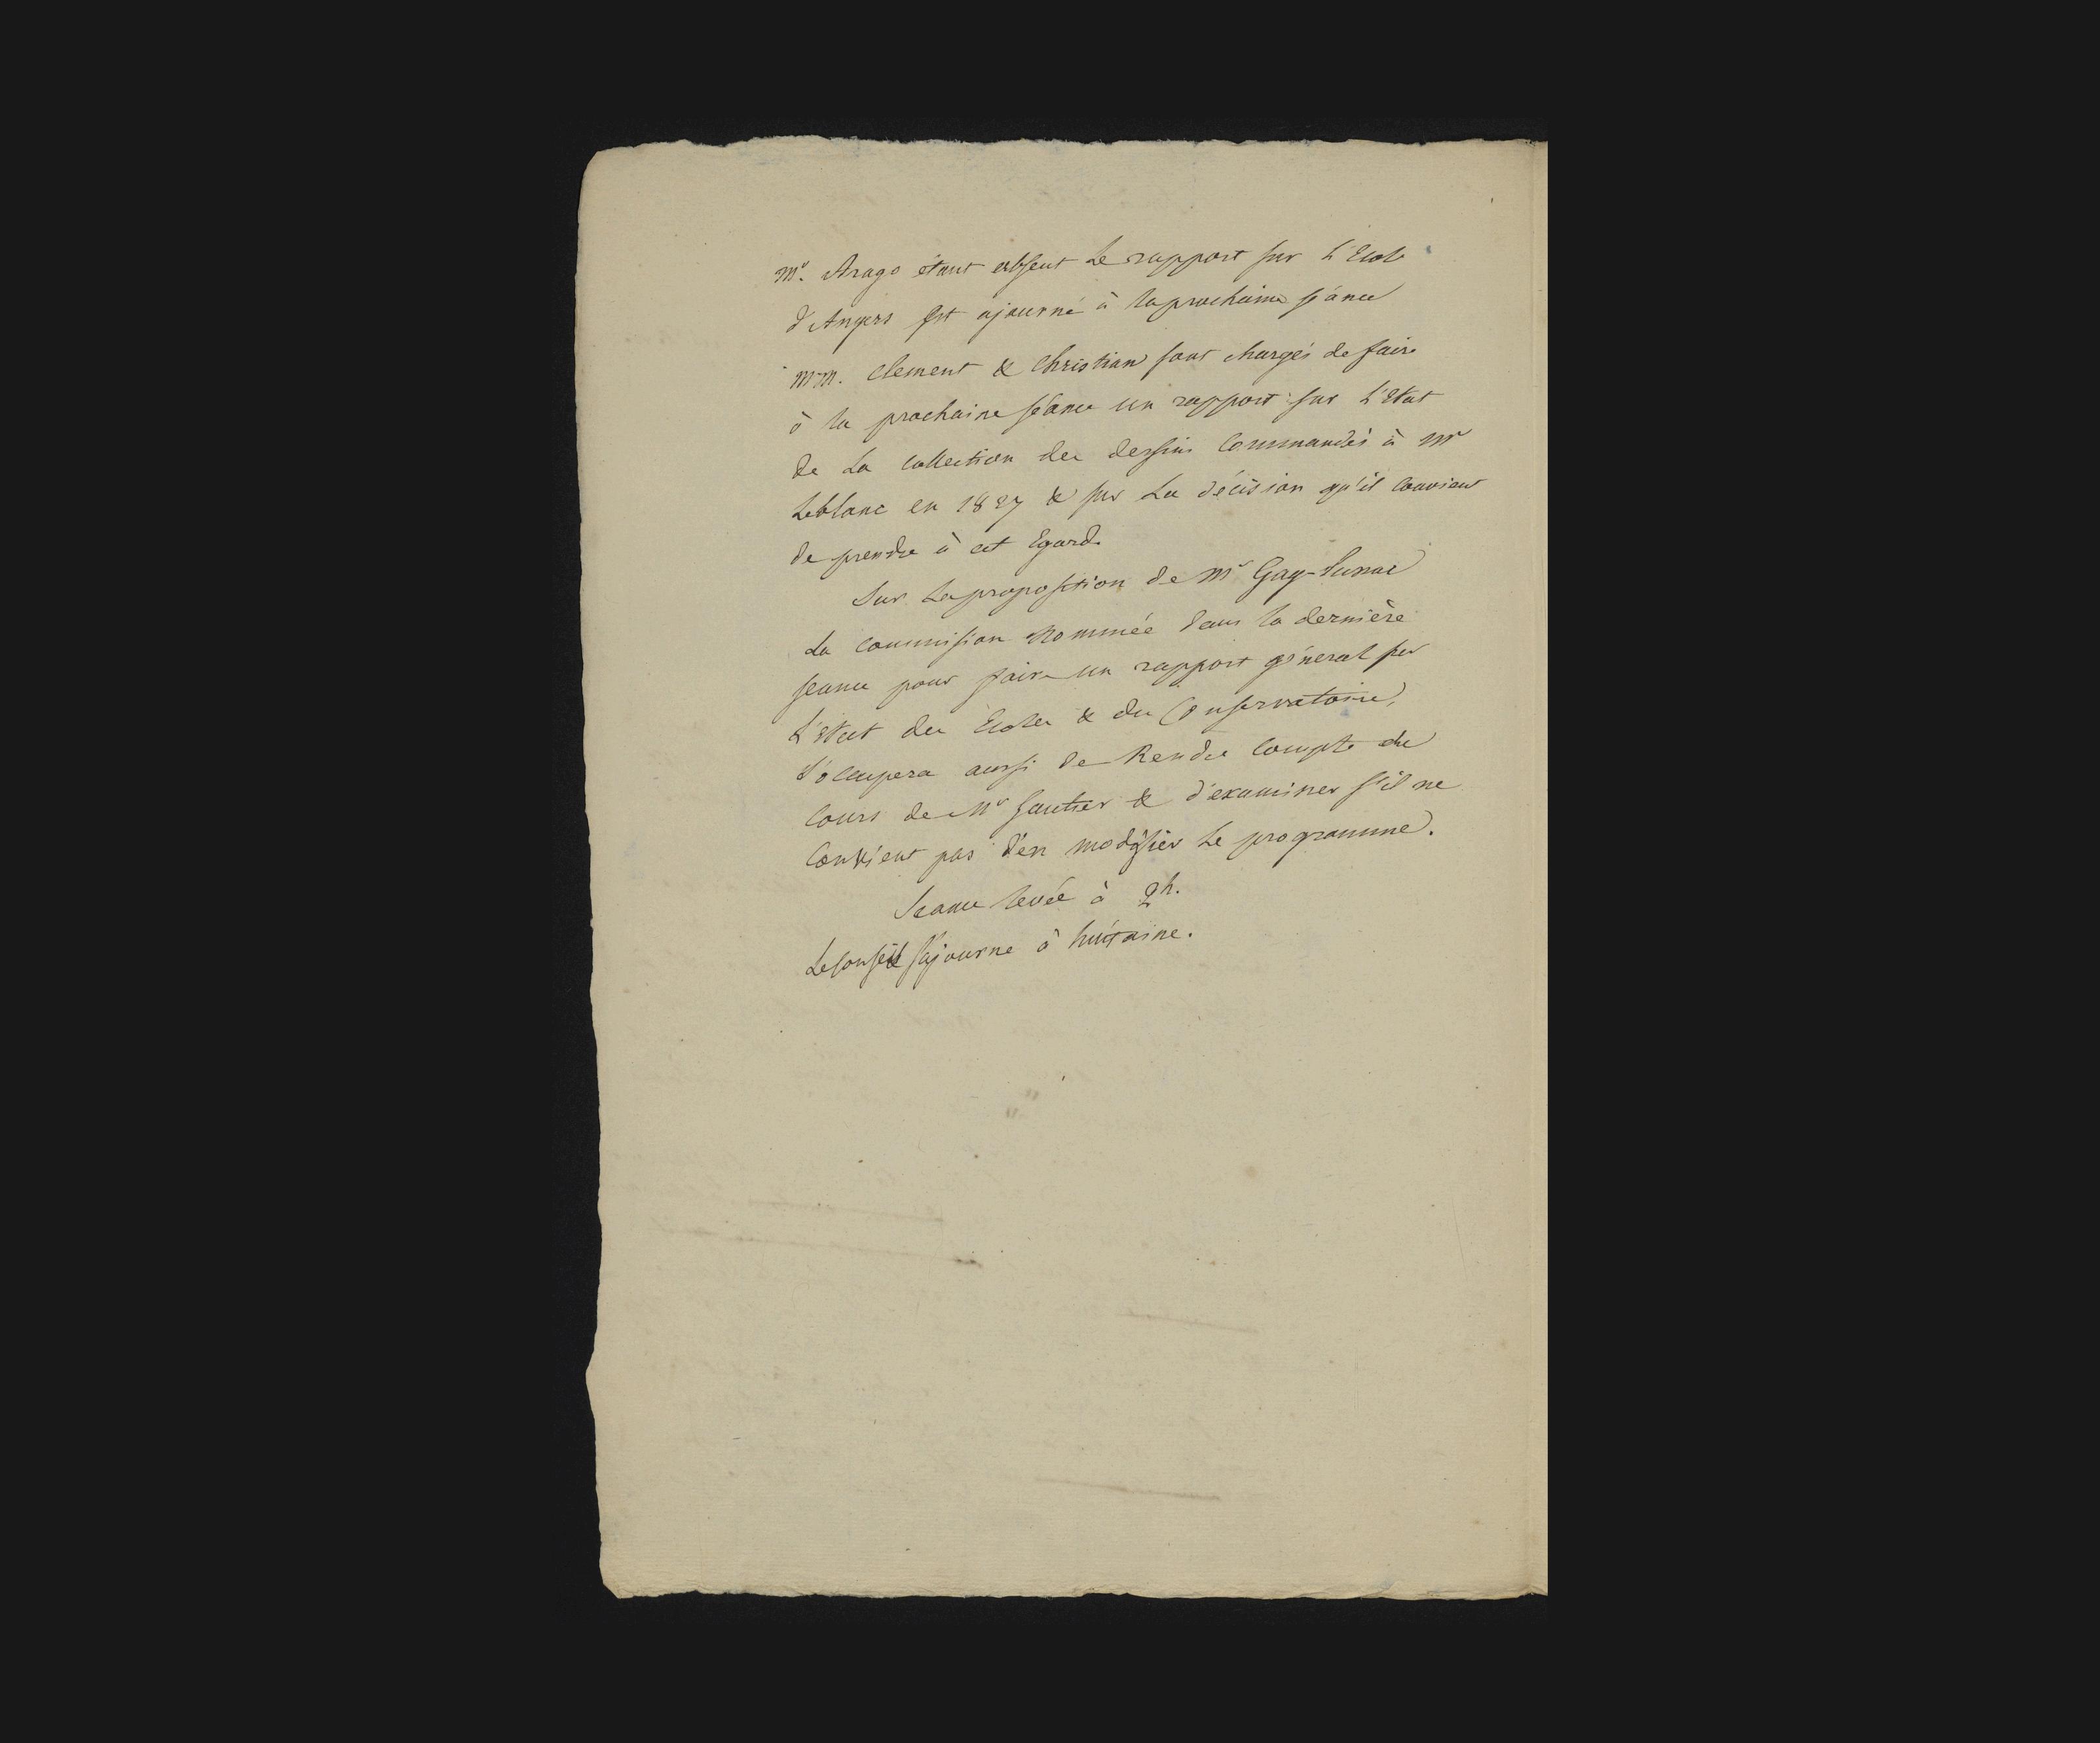 Mr. Arago étant absent Le rapport sur L'Ecole
d'Angers est ajourné à la prochaine séance
MM. Clement & Christian sont chargés de faire
à la prochaine séance un rapport sur L'Etat
de La Collection des dessins Commandés à Mr
Leblanc en 1827 & sur La décision qu'il convient
de prendre à cet Egard.
Sur La proposition de Mr Gay-Lussac
La Commission Nommée dans la dernière
seance pour faire un rapport géneral sur
L'Etat des Ecoles & du Conservatoire,
s'occupera aussi de Rendre Compte du
Cours de Mr Gautier & d'examiner s'il ne
Convient pas d'en modifier Le programme.
Seance levée à 2h.
Le Conseil s'ajourne à huitaine.